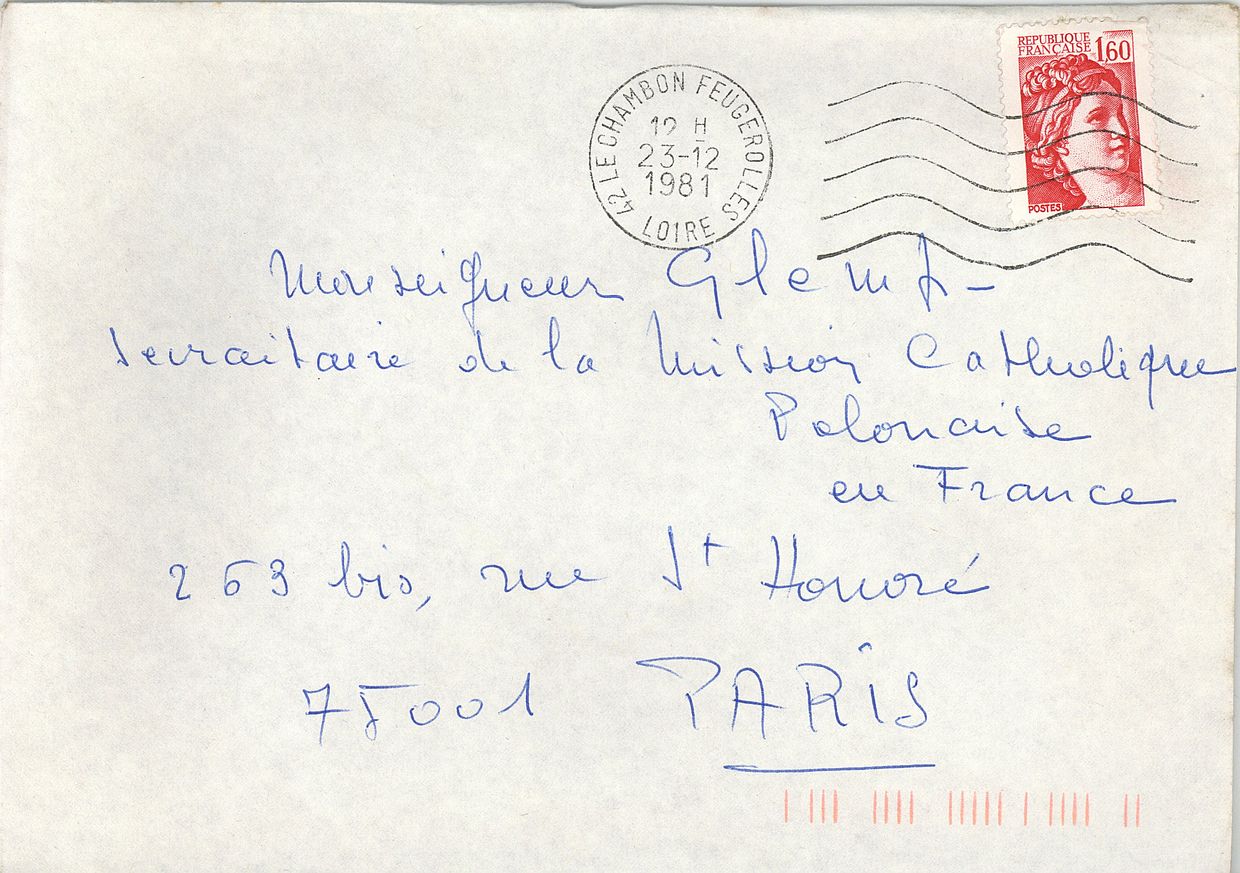 REPUBLIQUE
FRANÇAISE 1,60
POSTES
42 LE CHAMBON FEUGEROLLES
12 H
23-12
1981
LOIRE
Monseigneur Glemp -
secraitaire de la Mission Catholique
Polonaise
en France
263 bis, rue St Honoré
75001 PARIS